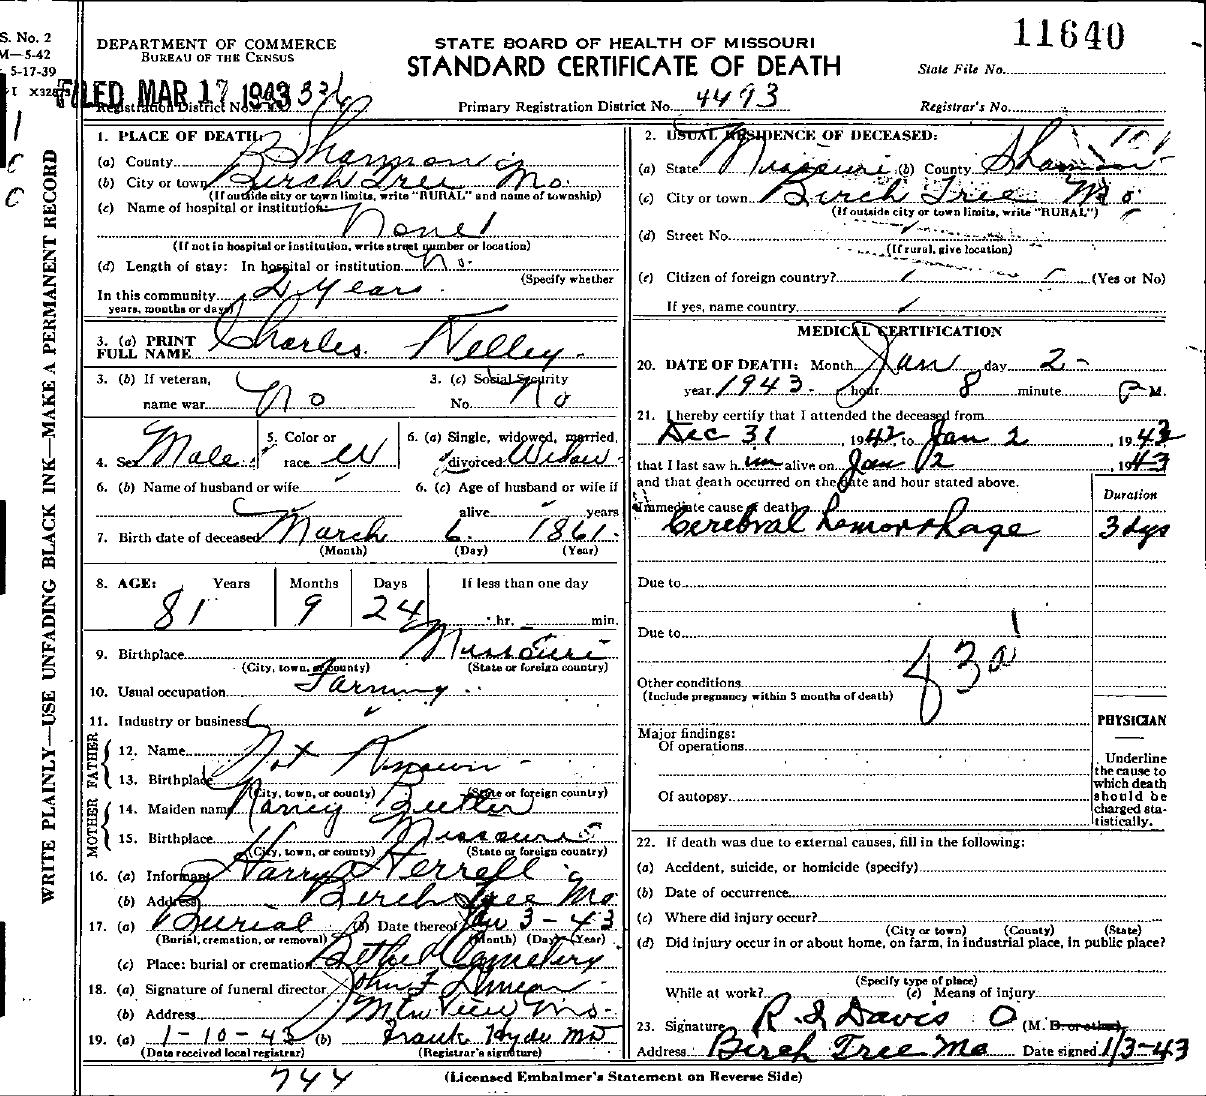 S. No. 2
M—5-42
5-17-39
I X32873
11640
DEPARTMENT OF COMMERCE
BUREAU OF THE CENSUS
STATE BOARD OF HEALTH OF MISSOURI
STANDARD CERTIFICATE OF DEATH
State File No.
FILED MAR 17 1943
Registration District No.
Primary Registration District No. 4493
Registrar's No.
WRITE PLAINLY—USE UNFADING BLACK INK—MAKE A PERMANENT RECORD
1. PLACE OF DEATH:
(a) County Shannon
(b) City or town Birch Tree Mo.
(If outside city or town limits, write "RURAL" and name of township)
(c) Name of hospital or institution:
None
(If not in hospital or institution, write street number or location)
(d) Length of stay: In hospital or institution no.
(Specify whether
In this community 2 Years.
years, months or days)
3. (a) PRINT FULL NAME Charles Kelley.
3. (b) If veteran, name war No
3. (c) Social Security No. No
4. Sex Male
5. Color or race W
6. (a) Single, widowed, married, divorced Widow
6. (b) Name of husband or wife
6. (c) Age of husband or wife if alive years
7. Birth date of deceased March 6. 1861.
(Month) (Day) (Year)
8. AGE: Years Months Days If less than one day
81 9 24 hr. min.
9. Birthplace Missouri
(City, town, or county) (State or foreign country)
10. Usual occupation Farming
11. Industry or business
FATHER
12. Name Not Known
13. Birthplace
(City, town, or county) (State or foreign country)
MOTHER
14. Maiden name Nancy Butler
15. Birthplace Missouri
(City, town, or county) (State or foreign country)
16. (a) Informant Harry Herrell
(b) Address Birch Tree Mo
17. (a) Burial (b) Date thereof Jan 3-43
(Burial, cremation, or removal) (Month) (Day) (Year)
(c) Place: burial or cremation Bethel Cemetery
18. (a) Signature of funeral director John F Duncan
(b) Address Mtn View Mo.
19. (a) 1-10-43 (b) Frank Hyde MD
(Date received local registrar) (Registrar's signature)
744
2. USUAL RESIDENCE OF DECEASED:
(a) State Missouri (b) County Shannon
(c) City or town Birch Tree Mo
(If outside city or town limits, write "RURAL")
(d) Street No.
(If rural, give location)
(e) Citizen of foreign country? (Yes or No)
If yes, name country
MEDICAL CERTIFICATION
20. DATE OF DEATH: Month Jan day 2-
year 1943. hour 8 minute P M.
21. I hereby certify that I attended the deceased from
Dec 31, 1942 to Jan 2, 1943
that I last saw him alive on Jan 2, 1943
and that death occurred on the date and hour stated above.
Duration
Immediate cause of death
Cerebral hemorrhage 3 dys
Due to
Due to
83a
Other conditions
(Include pregnancy within 3 months of death)
PHYSICIAN
Major findings:
Of operations
Underline the cause to which death should be charged statistically.
Of autopsy
22. If death was due to external causes, fill in the following:
(a) Accident, suicide, or homicide (specify)
(b) Date of occurrence
(c) Where did injury occur?
(City or town) (County) (State)
(d) Did injury occur in or about home, on farm, in industrial place, in public place?
(Specify type of place)
While at work? (e) Means of injury
23. Signature R I Davis O (M. D. or other)
Address Birch Tree Mo Date signed 1/3-43
(Licensed Embalmer's Statement on Reverse Side)